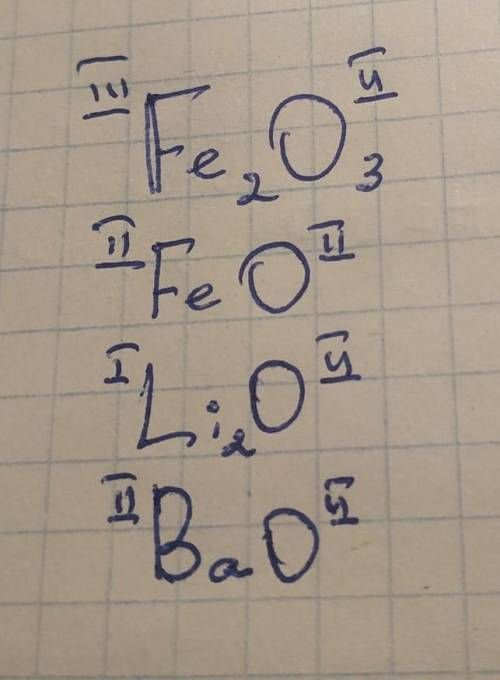 III Fe2O3 II
II FeO II
I Li2O II
II BaO II